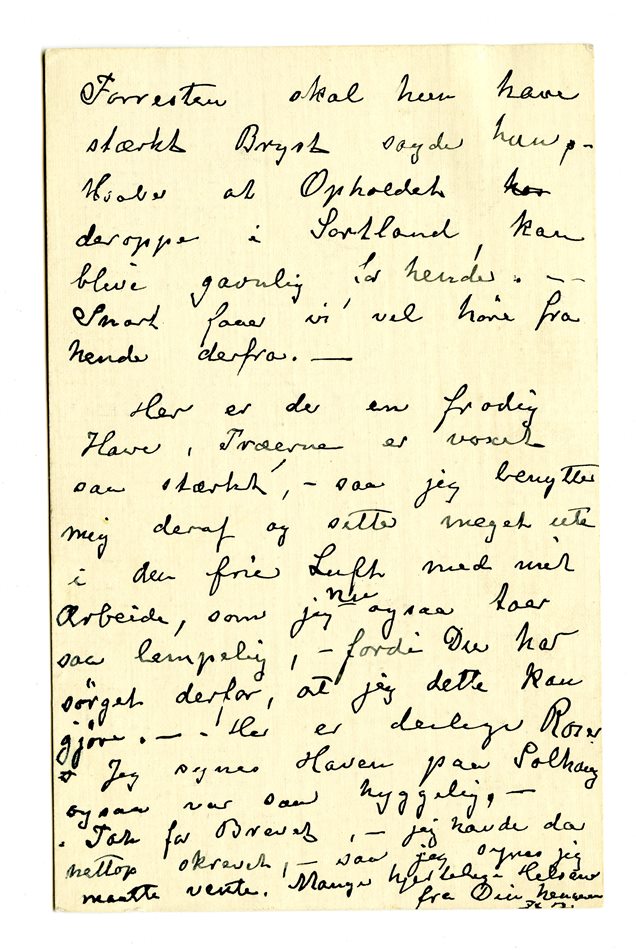 Forresten skal hun have
stærkt Bryst sagde hun, -
Haaber at Opholdet
deroppe i Sortland, kan
blive gavnlig for hende. - -
Snart faaer vi vel höre fra
hende derfra. —
Her er de en frodig
Have, Træerne er voxet
saa stærkt, - saa jeg benytter
mig deraf og sitter meget ute
i den frie Luft med mit
Arbeide, som jeg nu ogsaa taer
saa lempelig, - fordi Du har
sörget derfor, at jeg dette kan
gjöre. — . Her er deilige Roser
Jeg synes Haven paa Solhaug
ogsaa var saa hyggelig, —
. Tak for Brevet, - jeg havde da
nettop skrevet, - saa jeg synes jeg
maatte vente. Mange hjertelige Helsener
fra Din